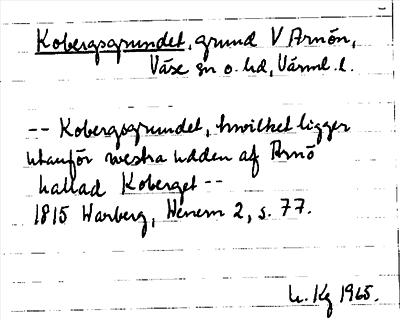 Kobergsgrundet, grund V Arnön,
Väse sn o. hd, Värml. l.
-- Kobergsgrundet, hwilket ligger
utanför westra udden af Arnö
kallad Koberget --
1815 Warberg, Wenern 2, s. 77.
1965.